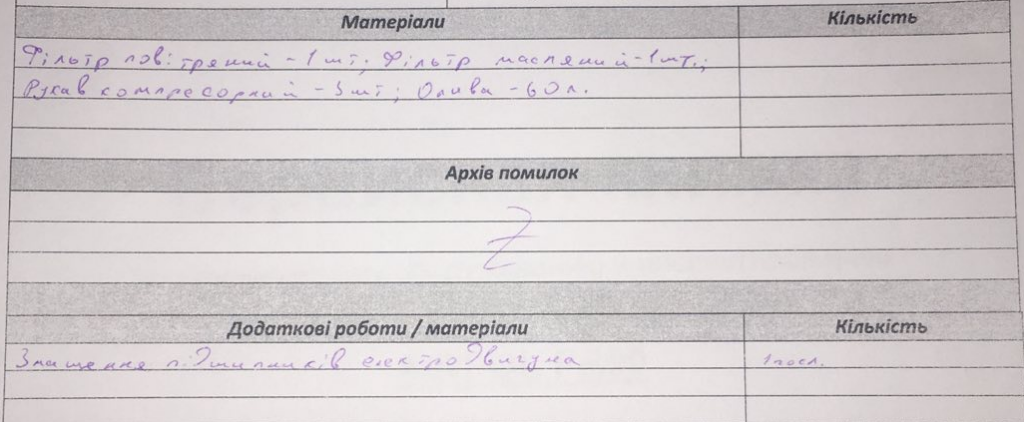 Матеріали Кількість
Фільтр повітряний - 1 шт; Фільтр масляний - 1 шт.;
Рукав компресорний - 3 шт; Олива - 60 л.
Архів помилок
Z
Додаткові роботи / матеріали Кількість
Змащення підшипників електродвигуна 1 посл.